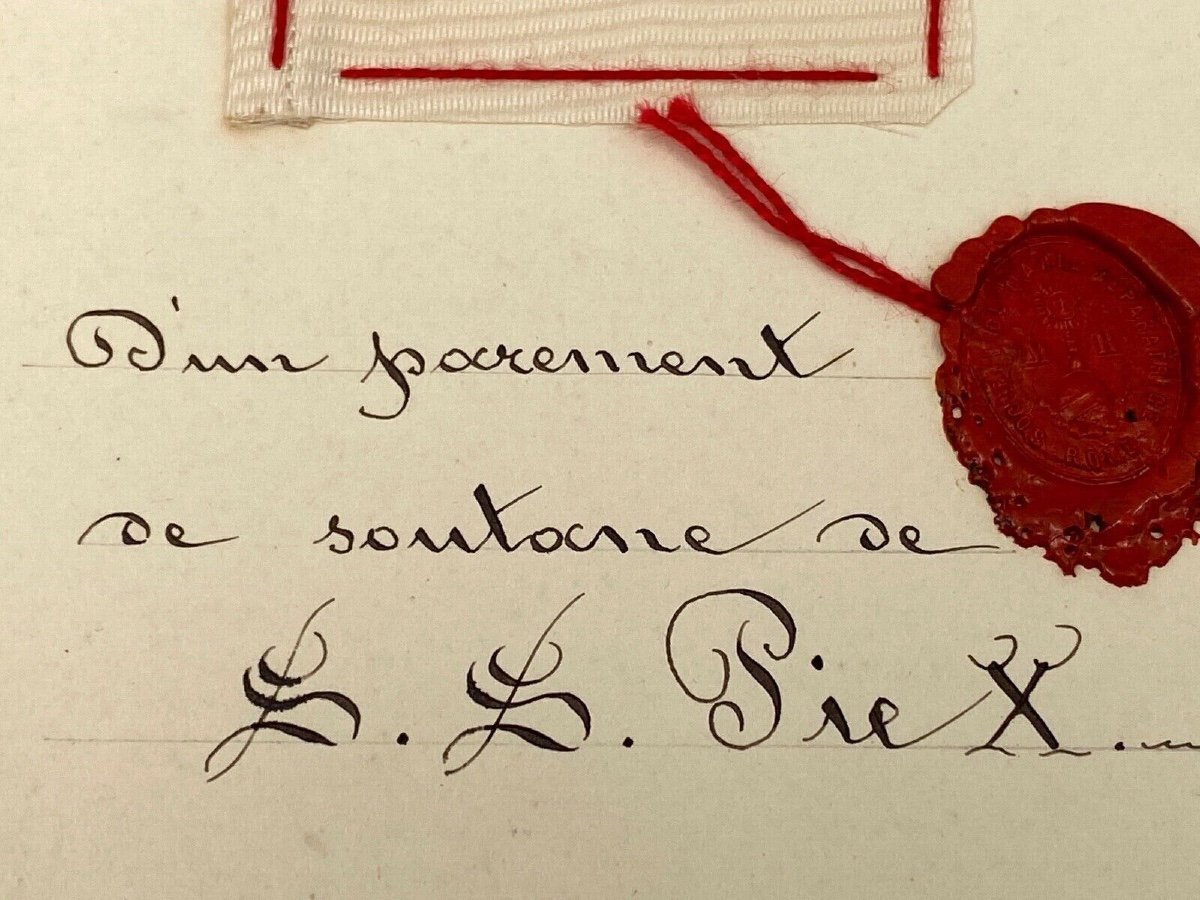 D'un parement
de soutane de
S. S. Pie X.
ROMA